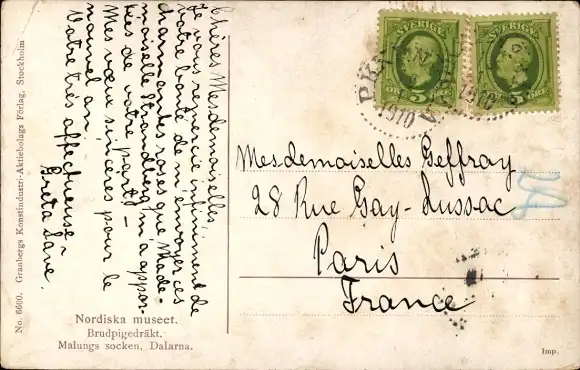 Chères Mesdemoiselles,
Je vous remercie infiniment de
votre bonté de m'envoyer ces
charmantes roses que Made-
moiselle Strandberg m'a appor-
tées de votre part. —
Mes vœux sincères pour le
nouvel an,
Votre très affectueuse
Greta
No. 6600. Granbergs Konstindustri-Aktiebolags Förlag, Stockholm
Nordiska museet.
Brudpigedräkt.
Malungs socken, Dalarna.
SVERIGE
ÖRE 5
SVERIGE
5
1910
1910
Mesdemoiselles Geffray
28 Rue Gay-Lussac
Paris
France
Imp.